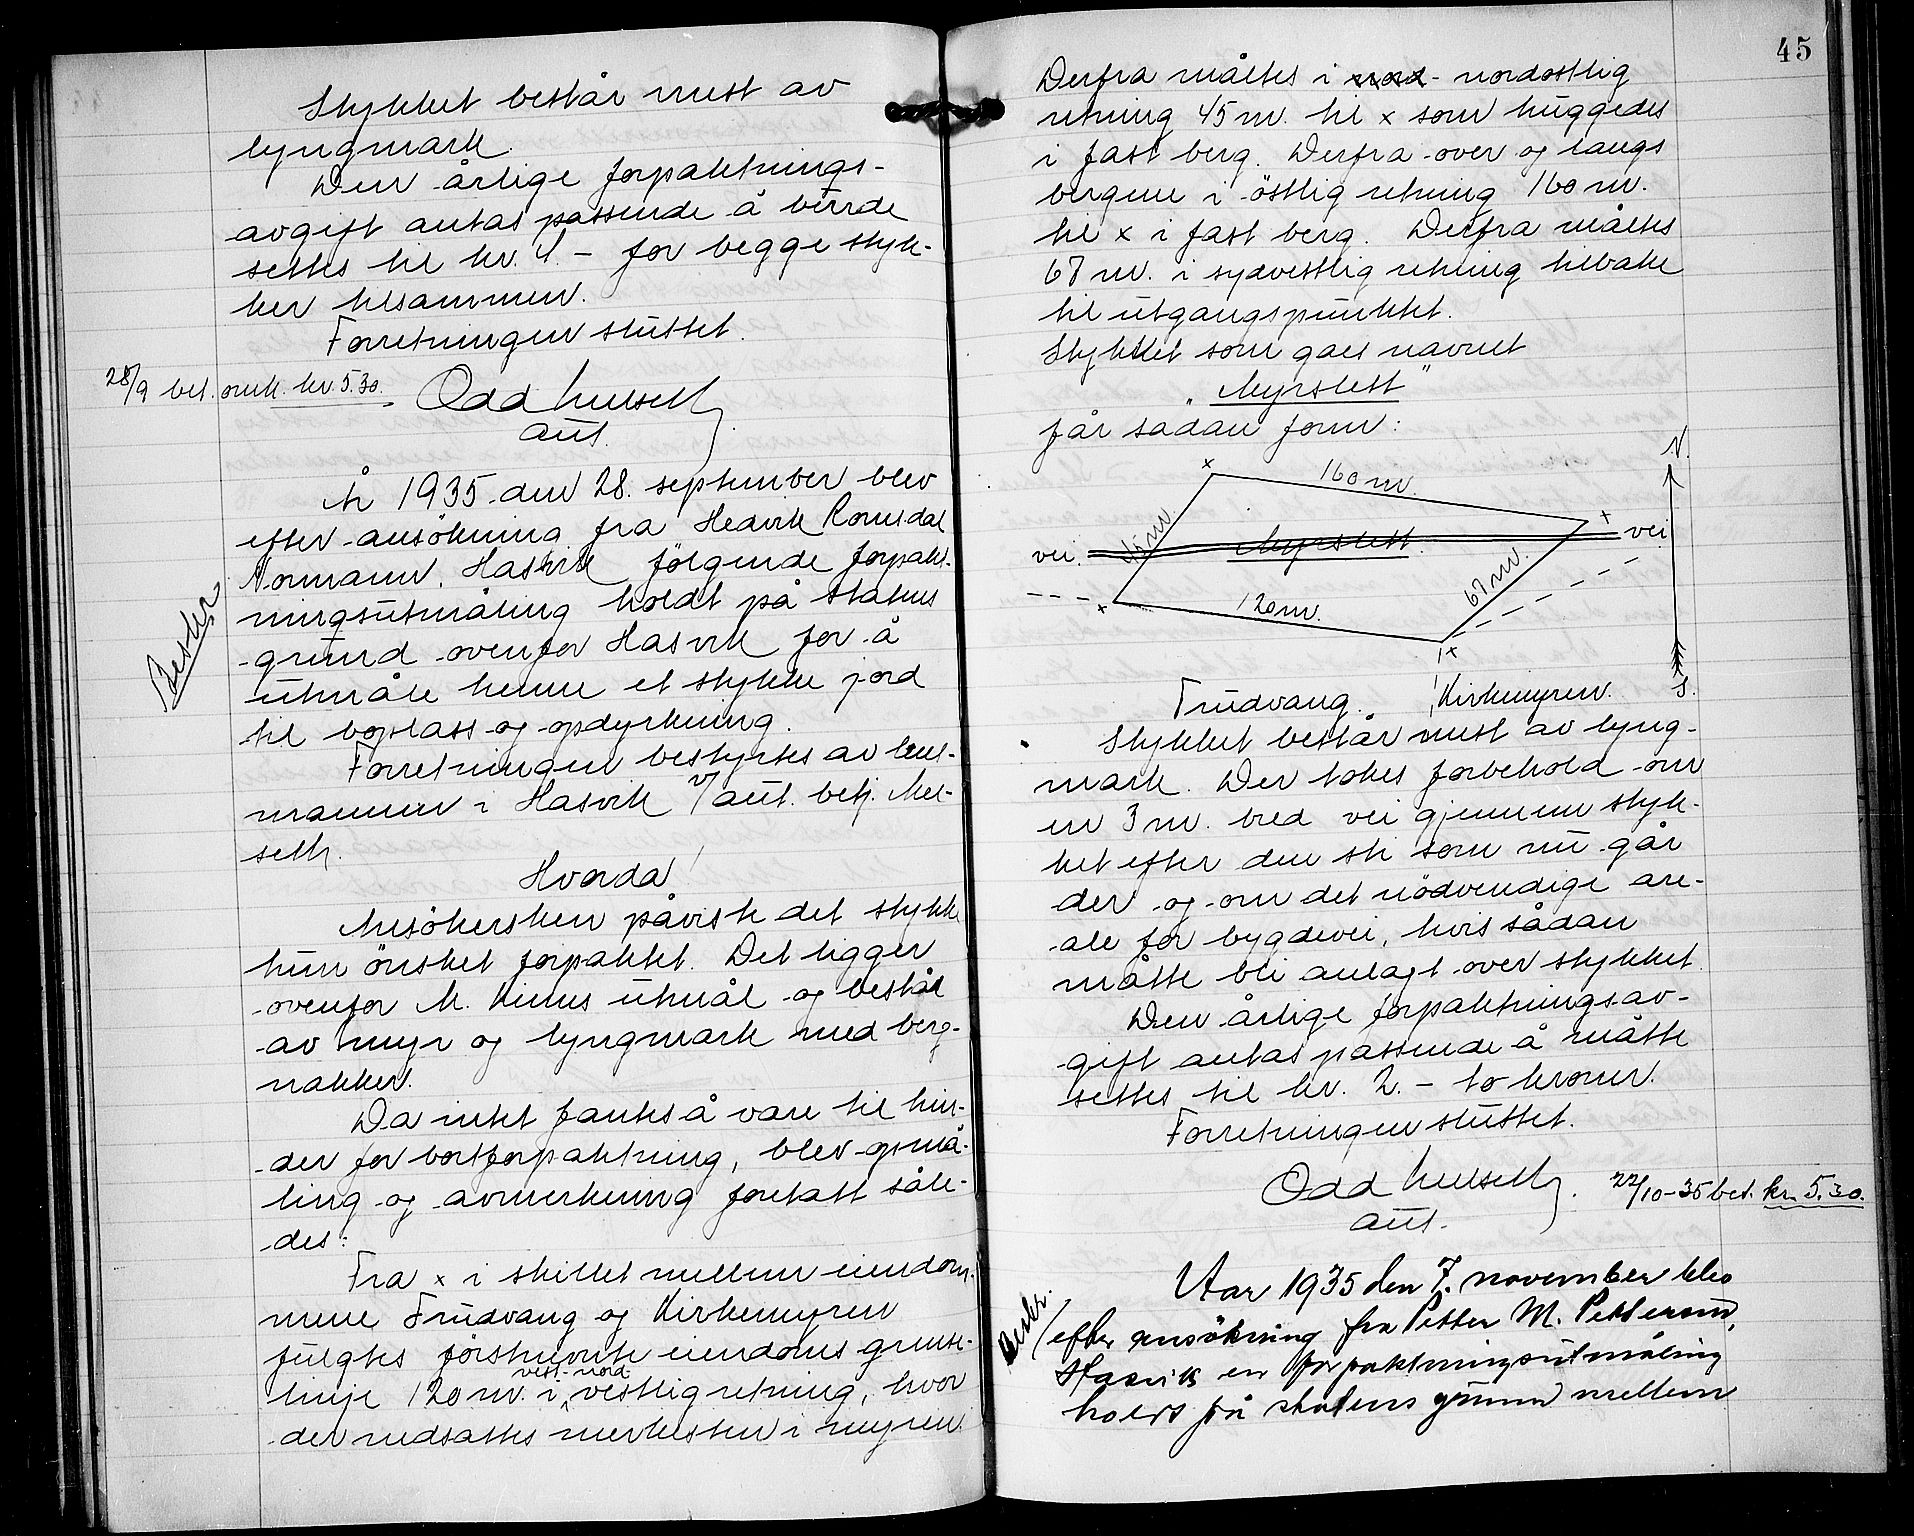 Stykket består mest av
lyngmark.
Den årlige forpaktnings-
avgift antas passende å burde
settes til kr. 4.- for begge styk-
ker tilsammen.
Forretningen sluttet.
28/9 bet. omk. kr. 5.30.
Odd
aut.
År 1935 den 28. september blev
efter ansökning fra Hedvik Romsdal
Normann, Hasvik følgende forpakt-
ningsutmåling holdt på statens
grund ovenfor Hasvik for å
utmåle henne et stykke jord
til boplass og opdyrkning.
Beskr
Forretningen bestyrtes av lens-
mannen i Hasvik v/ aut. betj.
seth.
Hvorda!
Ansökersken påviste det stykke
hun önsket forpaktet. Det ligger
ovenfor M. utmål og består
av myr og lyngmark med berg-
nakker.
Da intet fantes å være til hin-
der for bortforpaktning, blev opmå-
ling og avmerkning foretatt såle-
des:
Fra x i skillet mellem eiendom-
mene Trudvang og Kirkemyren
fulgtes förstnevnte eiendoms grense-
vest-nord
linje 120 m. i vestlig retning, hvor
der nedsattes merkesten i myren.
45
Derfra måltes i nord- nordostlig
retning 45 m. til x som huggedes
i fast berg. Derfra over og langs
bergene i östlig retning 160 m.
til x i fast berg. Derfra måltes
67 m. i sydvestlig retning tilbake
til utgangspunktet.
Stykket som gaes navnet
"Myrslett"
får sådan form:
N.
x
160 m.
x
vei.
45 m.
Myrslett.
vei
67 m.
x
120 m.
x
S.
Trudvang.
Kirkemyren.
Stykket består mest av lyng-
mark. Der tokes forbehold om
en 3 m. bred vei gjennem styk-
ket efter den sti som nu går
der og om det nödvendige are-
ale for bygdevei, hvis sådan
måtte bli anlagt over stykket.
Den årlige forpaktningsav-
gift antas passende å måtte
settes til kr. 2.- to kroner.
Forretningen sluttet.
Odd
aut.
22/10-35 bet. kr. 5.30.
Aar 1935 den 7. november blev
Beskr.
efter ansökning fra Petter M. Pettersen,
Hasvik en forpaktningsutmåling
holdt på statens grunn mellem